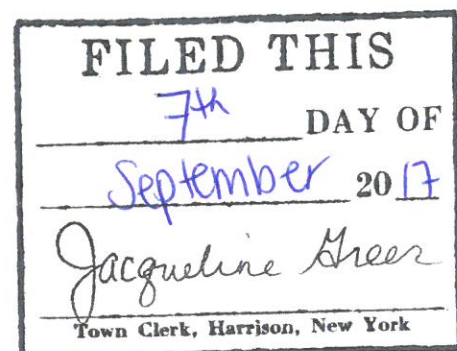 FILED THIS
7th DAY OF
September 2017
Jacqueline Greer
Town Clerk, Harrison, New York